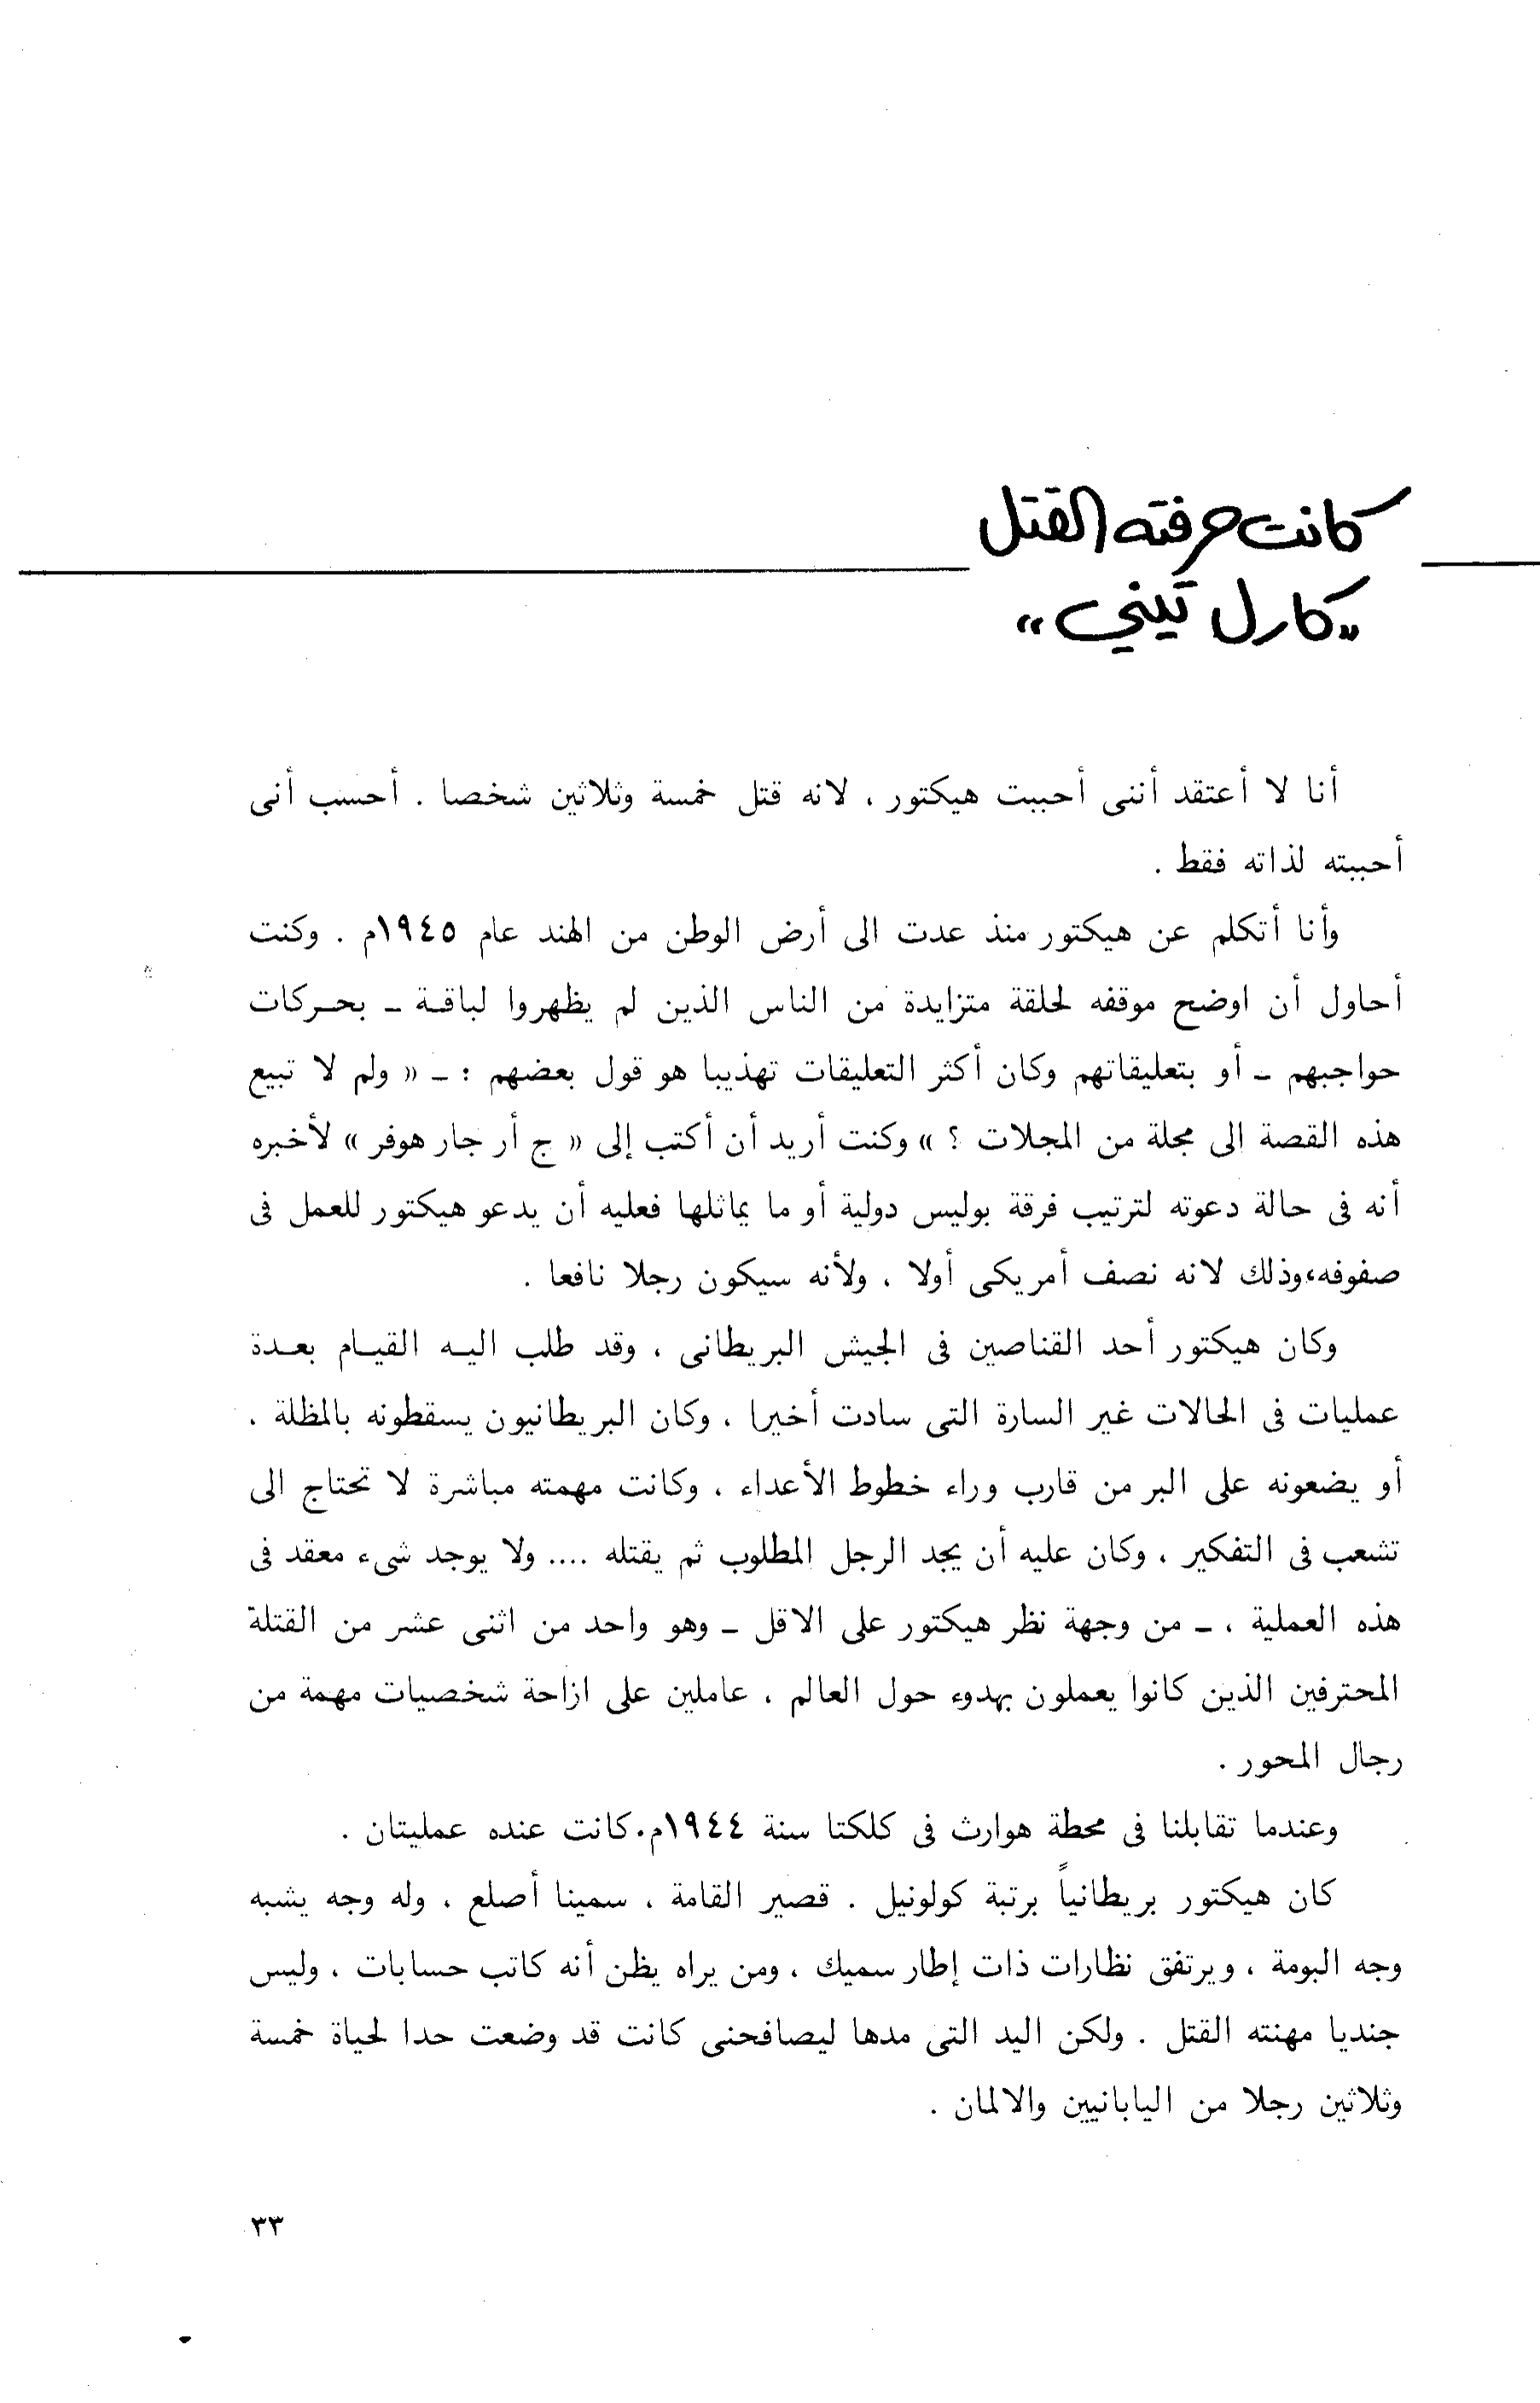 كانت حرفته القتل
«كارل تيني»
أنا لا أعتقد أننى أحببت هيكتور ، لانه قتل خمسة وثلاثين شخصا . أحسب أنى
أحببته لذاته فقط .
وأنا أتكلم عن هيكتور منذ عدت الى أرض الوطن من الهند عام ١٩٤٥م . وكنت
أحاول أن اوضح موقفه لحلقة متزايدة من الناس الذين لم يظهروا لباقة ـ بحركات
حواجبهم ـ أو بتعليقاتهم وكان أكثر التعليقات تهذيبا هو قول بعضهم : ـ « ولم لا تبيع
هذه القصة الى مجلة من المجلات ؟ » وكنت أريد أن أكتب إلى « ج أر جار هوفر » لأخبره
أنه فى حالة دعوته لترتيب فرقة بوليس دولية أو ما يماثلها فعليه أن يدعو هيكتور للعمل فى
صفوفه،وذلك لانه نصف أمريكى أولا ، ولأنه سيكون رجلا نافعا .
وكان هيكتور أحد القناصين فى الجيش البريطانى ، وقد طلب اليه القيام بعدة
عمليات فى الحالات غير السارة التى سادت أخيرا ، وكان البريطانيون يسقطونه بالمظلة ،
أو يضعونه على البر من قارب وراء خطوط الأعداء ، وكانت مهمته مباشرة لا تحتاج الى
تشعب فى التفكير ، وكان عليه أن يجد الرجل المطلوب ثم يقتله .... ولا يوجد شىء معقد فى
هذه العملية ، ـ من وجهة نظر هيكتور على الاقل ـ وهو واحد من اثنى عشر من القتلة
المحترفين الذين كانوا يعملون بهدوء حول العالم ، عاملين على ازاحة شخصيات مهمة من
رجال المحور .
وعندما تقابلنا فى محطة هوارث فى كلكتا سنة ١٩٤٤م.كانت عنده عمليتان .
كان هيكتور بريطانياً برتبة كولونيل . قصير القامة ، سمينا أصلع ، وله وجه يشبه
وجه البومة ، ويرتفق نظارات ذات إطار سميك ، ومن يراه يظن أنه كاتب حسابات ، وليس
جنديا مهنته القتل . ولكن اليد التى مدها ليصافحنى كانت قد وضعت حدا لحياة خمسة
وثلاثين رجلا من اليابانيين والالمان .
٣٣